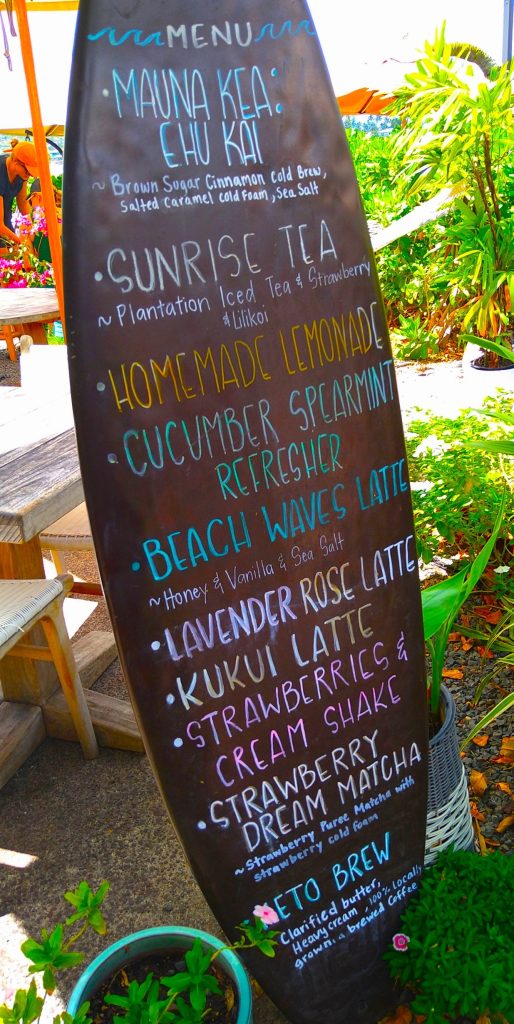 MENU
• MAUNA KEA:
EHU KAI
~ Brown Sugar Cinnamon Cold Brew,
Salted Caramel Cold foam, Sea Salt
• SUNRISE TEA
~ Plantation Iced Tea & Strawberry
& Lilikoi
• HOMEMADE LEMONADE
• CUCUMBER SPEARMINT
REFRESHER
• BEACH WAVES LATTE
~ Honey & Vanilla & Sea Salt
• LAVENDER ROSE LATTE
• KUKUI LATTE
• STRAWBERRIES &
CREAM SHAKE
• STRAWBERRY
DREAM MATCHA
~ Strawberry Puree Matcha with
strawberry cold foam
ETO BREW
Clarified butter,
Heavy cream, 100% Locally
grown & brewed Coffee